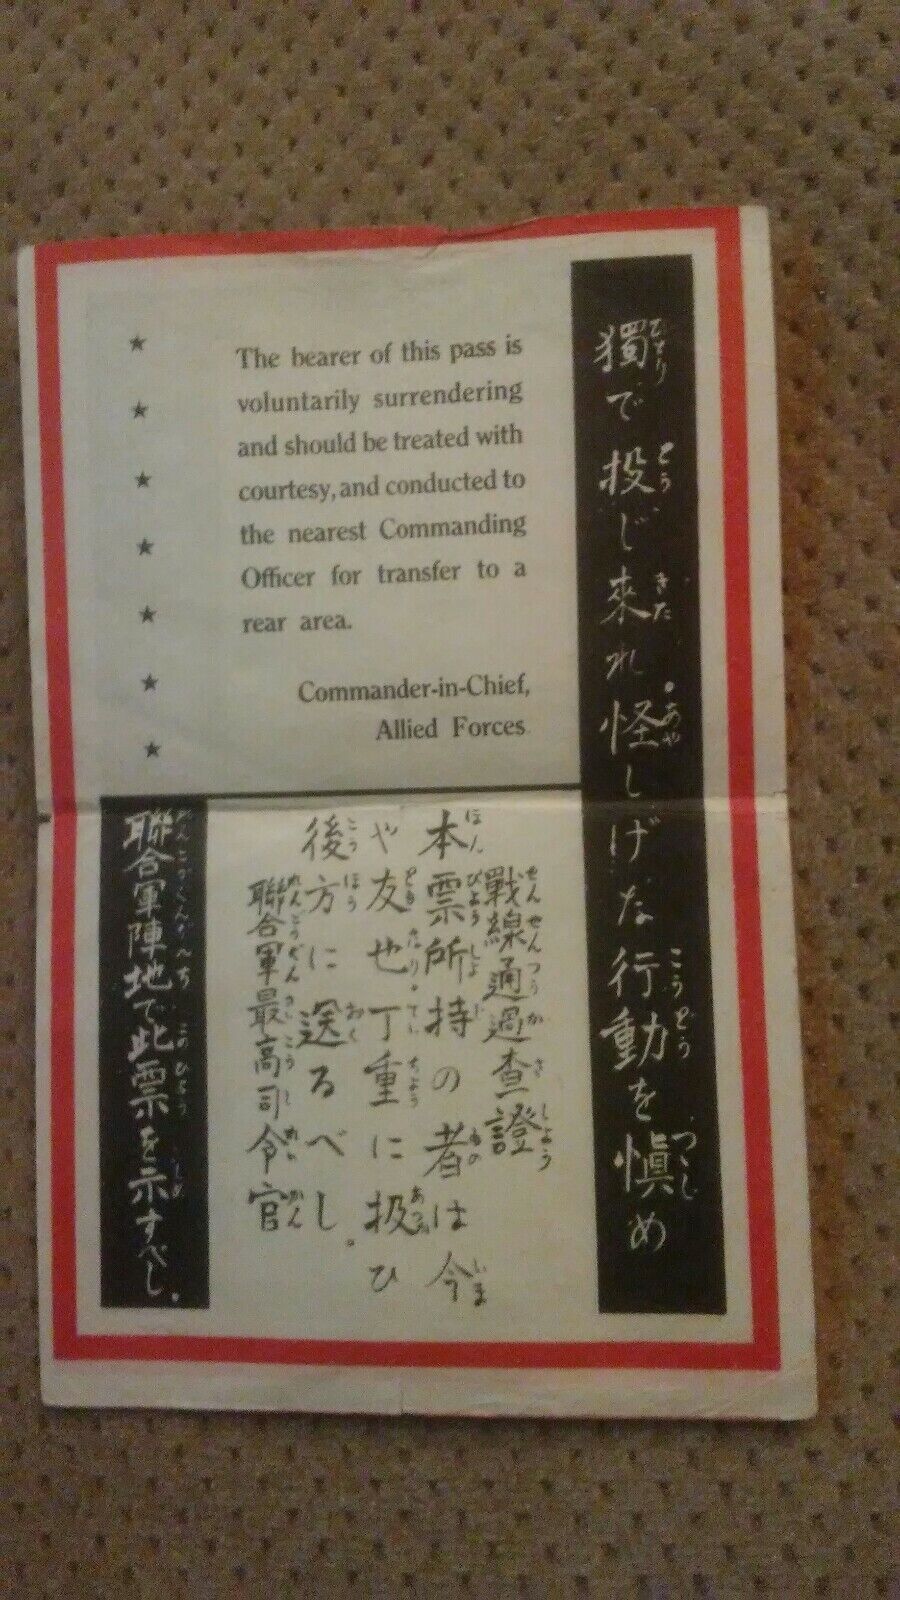 The bearer of this pass is
voluntarily surrendering
and should be treated with
courtesy, and conducted to
the nearest Commanding
Officer for transfer to a
rear area.
Commander-in-Chief,
Allied Forces
獨で投じ來れ。怪しげな行動を慎め
戰線通過査證
本票所持の者は今
や友也。丁重に扱ひ
後方に送るべし。
聯合軍最高司令官
聯合軍陣地で此票を示すべし。